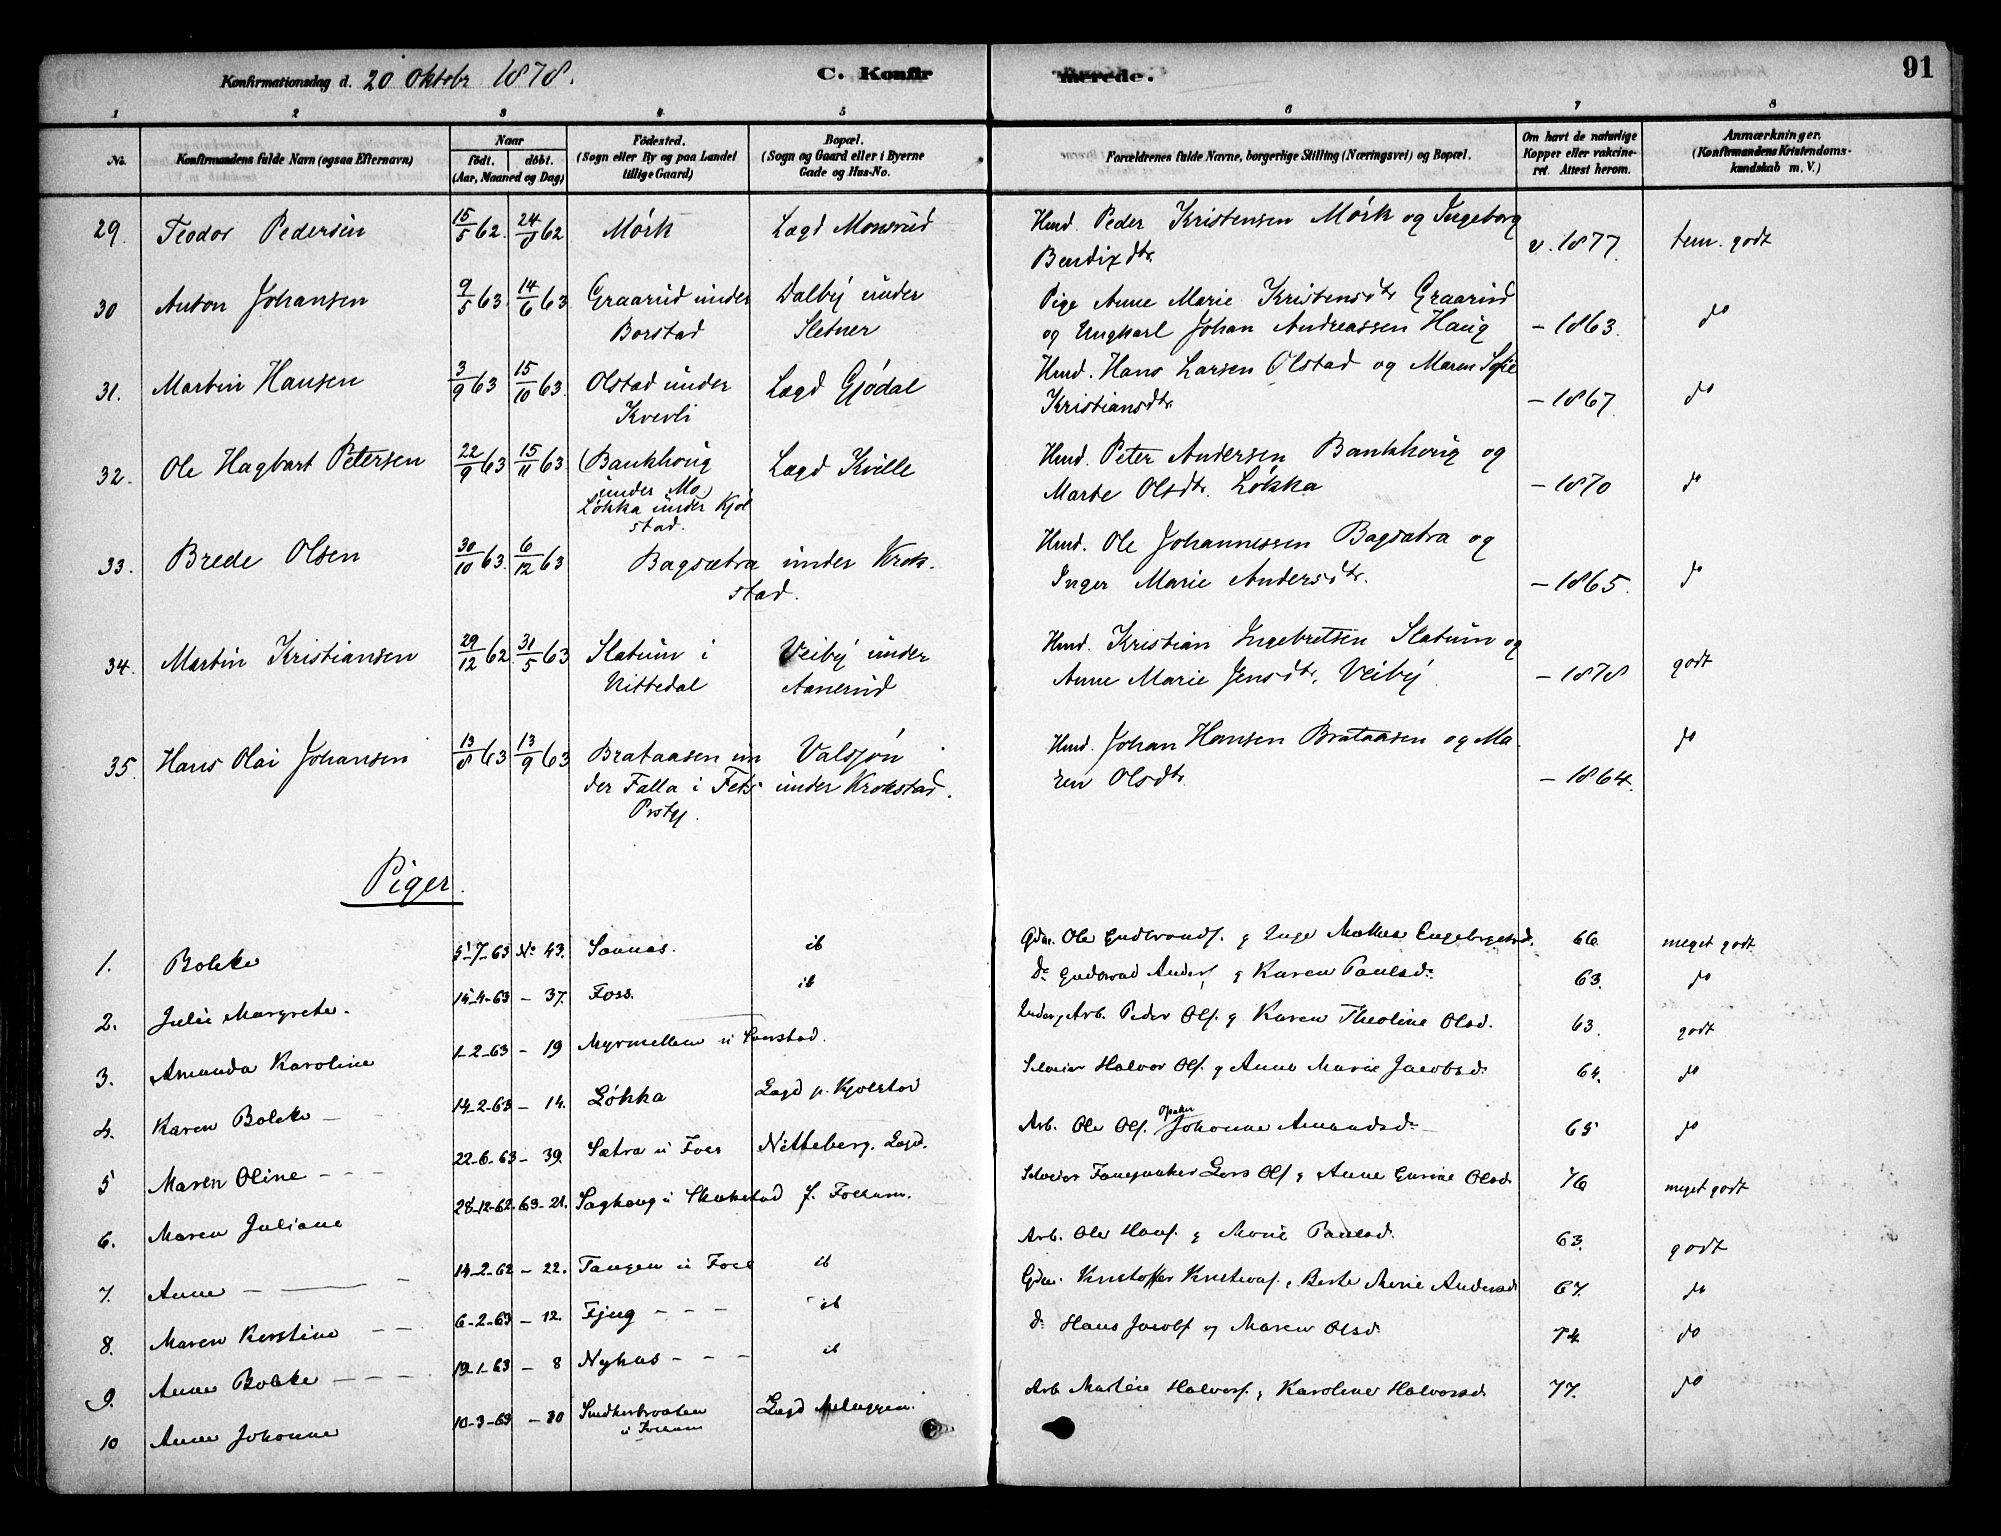 Konfirmationsdag d. 20 Oktobr 1878.
C. Konfirmerede.
91
1 2 3 4 5 6 7 8
No.
Konfirmandens fulde Navn (ogsaa Efternavn)
Naar
født. døbt.
(Aar, Maaned og Dag)
Fødested.
(Sogn eller By og paa Landet
tillige Gaard)
Bopæl.
(Sogn og Gaard eller i Byerne
Gade og Hus-No.
Forældrenes fulde Navne, borgerlige Stilling (Næringsvei) og Bopæl.
Om havt de naturlige
Kopper eller vakcine-
ret. Attest herom.
Anmærkninger.
(Konfirmandens Kristendoms-
kundskab m. V.)
29. Teodor Pedersen 15/5 62. 24/8 62 Mørk Lægd Monsrud Hmd. Peder Kristensen Mørk og Ingeborg
Bendixdtr. v. 1877. tem. godt
30 Anton Johansen 9/5 63 14/6 63 Graarud under Dalby under Pige Anne Marie Kristensdtr Graarud
Borstad Sletner og Ungkarl Johan Andreassen Haug – 1863. do
31. Martin Hansen 3/9 63 15/10 63. Olstad under Lægd Gjødal Hmd. Hans Larsen Olstad og Maren Sofie
Kverli Kristiansdtr. – 1867. do
32. Ole Hagbart Petersen 22/9 63 15/11 63 (Bankhoug Lægd Kville Hmd. Peter Andersen Bankhoug og
under Mo)
Løkka under Kjøl
stad. Marte Olsdtr. Løkka – 1870 do
33. Brede Olsen 30/10 63. 6/12 63 Bagsætra under Krok-
stad. Hmd. Ole Johannessen Bagsætra og
Inger Marie Andersdtr. – 1865. do
34. Martin Kristiansen 29/12 62. 31/5 63 Slatum i Veiby under Hmd. Kristian Ingebretsen Slatum og
Nittedal Aanerud Anne Marie Jensdtr. Veiby – 1878 godt
35. Hans Olai Johansen 13/8 63 13/9 63 Brataasen un Valsjøn Hmd. Johan Hansen Brataasen og Ma-
der Falla i Fets under Krokstad. ren Olsdtr. – 1864. do
Prstgj.
Piger.
1. Bolette 5-7-63 No 43. ib Gdm. Ole Gudbrands. g Inge Mathea 66. meget godt
2. Julie Margrete. 15-4-63 – 37. Foss. ib do Anders. g Karen Paulsd. 63. do
3. Amanda Karoline 1-2-63 – 19 Arb. Peder Ols. g Karen Theoline Olsd. 63. godt
4. Karen Bolette – 14-2-63 – 14. Løkka Lægd p. Kjølstad Halvor Ols. g Anne Marie Jacobsd. 64. do
5 Maren Oline – – – 22-6-63 – 39. Sætra u Foss Nitteberg. Lægd. Arb. Ole Ols. Johanne Amundsd. – 65 do
6. Maren Juliane 28-12-62. 63-21. Saghaug u f. Follum. Lars Ols. g Anne Olsd. 76 meget godt
7. Anne – 14-2-62 – 22. Tangen u Foss ib Arb. Ole Hans. g Marie Paulsd. 63. godt
8. Maren Kirstine – – 6-2-63 – 12. Fjug – – – ib Gdm. Kristoffer g Berte Marie Andersd. 67. do
9. Anne Bolette – – – 19-1-63 – 8 Nyhus – – – ib do Hans Jacobs. og Maren Olsd. 74. do
10 Anne Johanne 10-3-63 – 30 Lægd Arb. Halvors. g Karoline Halvorsd. 77. do
u Follum